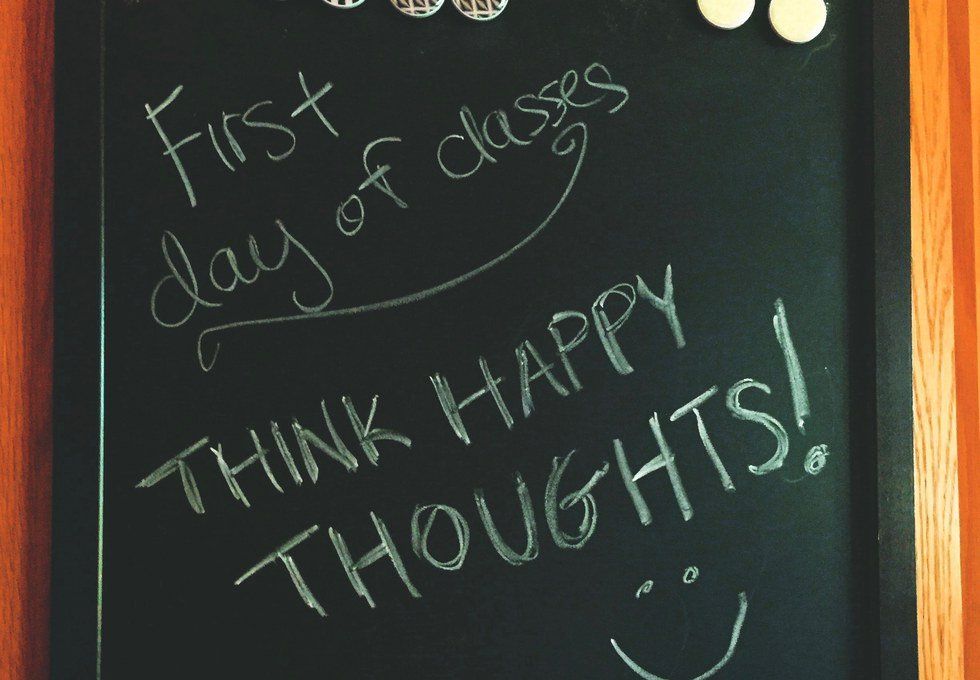 First
day of classes
THINK HAPPY
THOUGHTS!